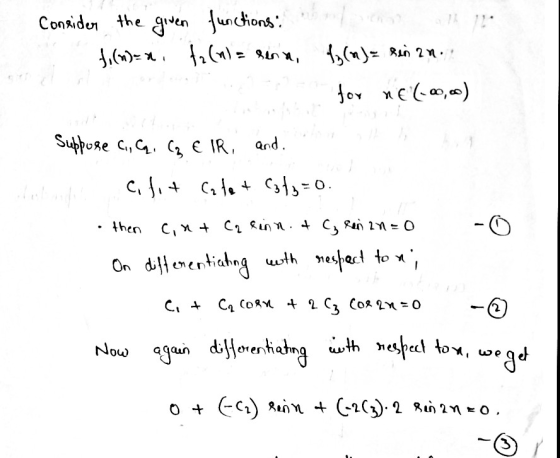 Consider the given functions:
f₁(x)=x, f₂(x)= sin x, f₃(x)= sin 2x.
for x ∈ (-∞,∞)
Suppose C₁, C₂, C₃ ∈ IR, and.
C₁f₁ + C₂f₂ + C₃f₃=0.
· then C₁x + C₂ sin x. + C₃ sin 2x=0 -①
On differentiating with respect to x;
C₁ + C₂ cos x + 2 C₃ cos 2x=0 -②
Now again differentiating with respect to x, we get
0 + (-C₂) sin x + (-2C₃)·2 sin 2x = 0.
-③